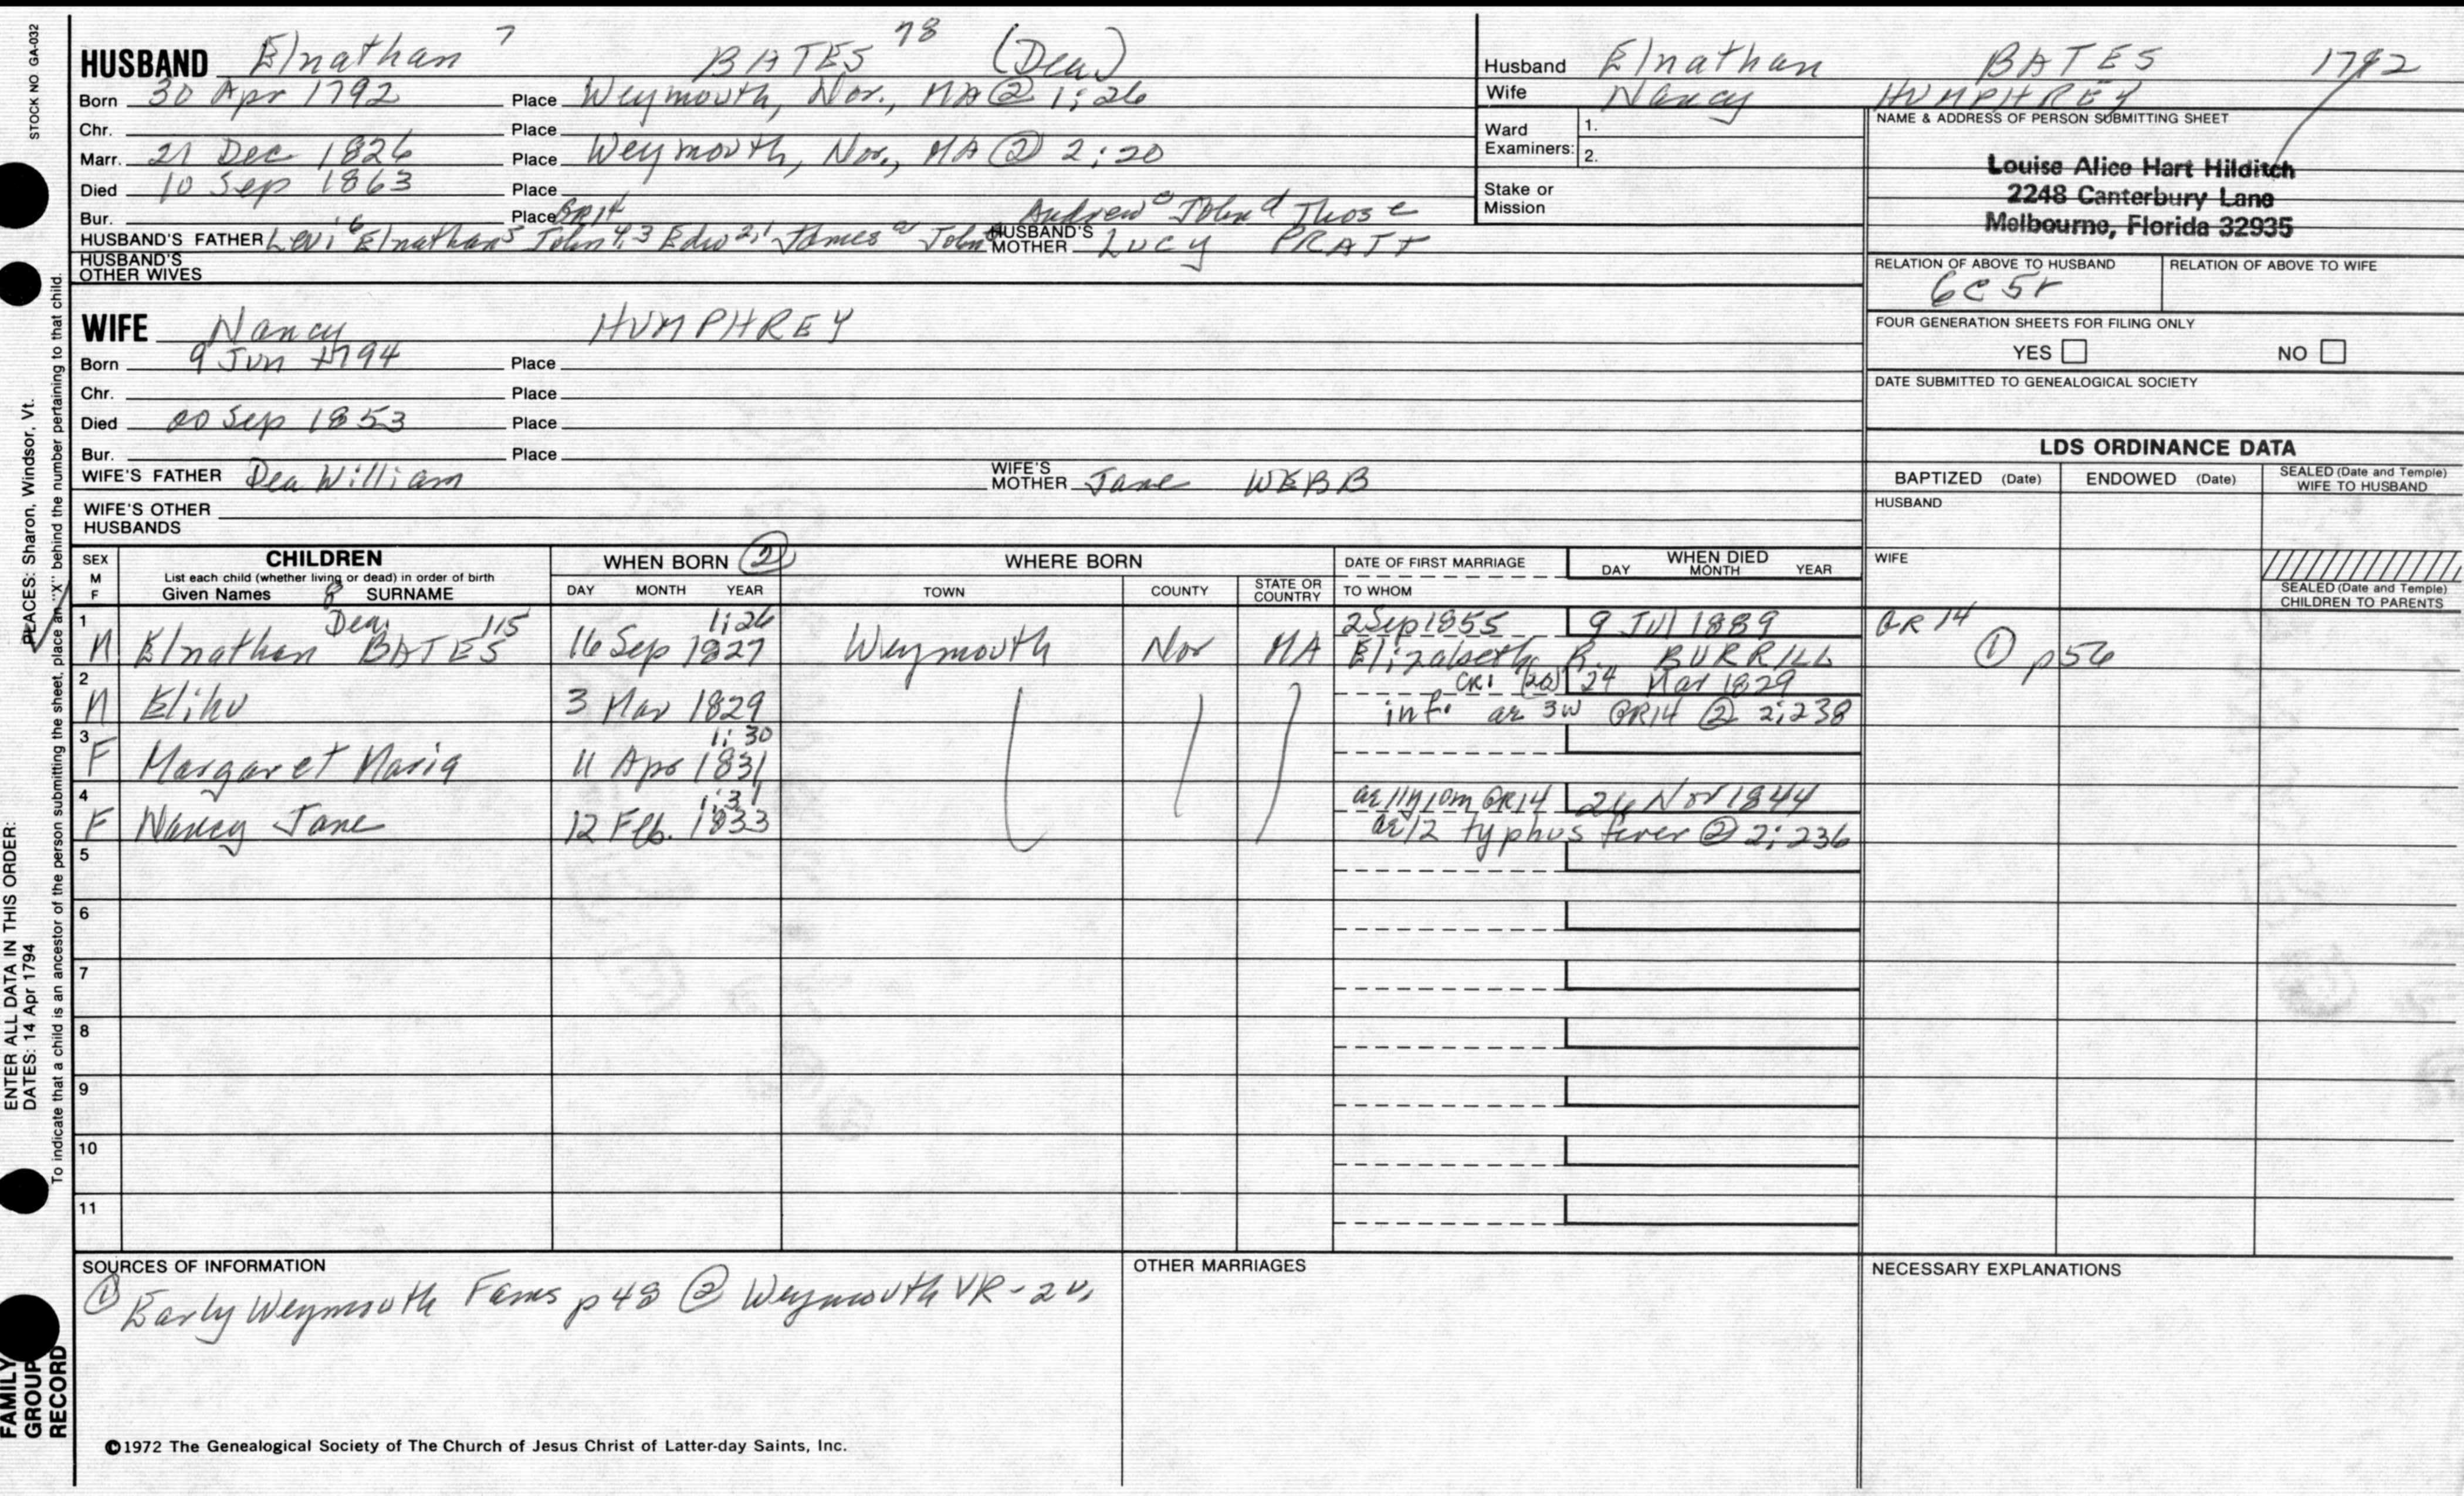 STOCK NO GA-032
HUSBAND Elnathan 7 BATES 78 (Dea)
Born 30 Apr 1792 Place Weymouth, Nor., MA @ 1:26
Chr. Place
Marr. 21 Dec 1826 Place Weymouth, Nor., MA ② 2:20
Died 10 Sep 1863 Place
Bur. Place GR14 Andrew c John d Thos e
HUSBAND'S FATHER Levi 6 Elnathan 5 John 4,3 Edw 2,1 James a John b HUSBAND'S MOTHER LUCY PRATT
HUSBAND'S OTHER WIVES
WIFE Nancy HUMPHREY
Born 9 Jun 1794 Place
Chr. Place
Died 20 Sep 1853 Place
Bur. Place
WIFE'S FATHER Dea William WIFE'S MOTHER Jane WEBB
WIFE'S OTHER HUSBANDS
Husband Elnathan BATES 1792
Wife Nancy HUMPHREY
Ward Examiners: 1.
2.
Stake or Mission
NAME & ADDRESS OF PERSON SUBMITTING SHEET
Louise Alice Hart Hilditch
2248 Canterbury Lane
Melbourne, Florida 32935
RELATION OF ABOVE TO HUSBAND RELATION OF ABOVE TO WIFE
6C 5r
FOUR GENERATION SHEETS FOR FILING ONLY
YES NO
DATE SUBMITTED TO GENEALOGICAL SOCIETY
LDS ORDINANCE DATA
BAPTIZED (Date) ENDOWED (Date) SEALED (Date and Temple) WIFE TO HUSBAND
HUSBAND
WIFE
SEALED (Date and Temple) CHILDREN TO PARENTS
SEX M F CHILDREN WHEN BORN ② WHERE BORN DATE OF FIRST MARRIAGE WHEN DIED
List each child (whether living or dead) in order of birth
Given Names 8 SURNAME DAY MONTH YEAR TOWN COUNTY STATE OR COUNTRY TO WHOM DAY MONTH YEAR
1 Dea. 115 1:26 2 Sep 1855 9 Jul 1889 GR 14
M Elnathan BATES 16 Sep 1827 Weymouth Nor MA Elizabeth R. BURRILL ① p56
2 CR1 (20) 24 Mar 1829
M Elihu 3 Mar 1829 inf. ae 3w GR14 ② 2:238
3 1:30
F Margaret Maria 11 Apr 1831
4 1:31 ae 11y 10m GR14 26 Nov 1844
F Nancy Jane 12 Feb. 1833 ae 12 typhus fever ② 2:236
5
6
7
8
9
10
11
SOURCES OF INFORMATION
① Early Weymouth Fams p 48 ② Weymouth VR - 2 v.
OTHER MARRIAGES
NECESSARY EXPLANATIONS
©1972 The Genealogical Society of The Church of Jesus Christ of Latter-day Saints, Inc.
ENTER ALL DATA IN THIS ORDER:
DATES: 14 Apr 1794 PLACES: Sharon, Windsor, Vt.
To indicate that a child is an ancestor of the person submitting the sheet, place an "X" behind the number pertaining to that child.
FAMILY GROUP RECORD